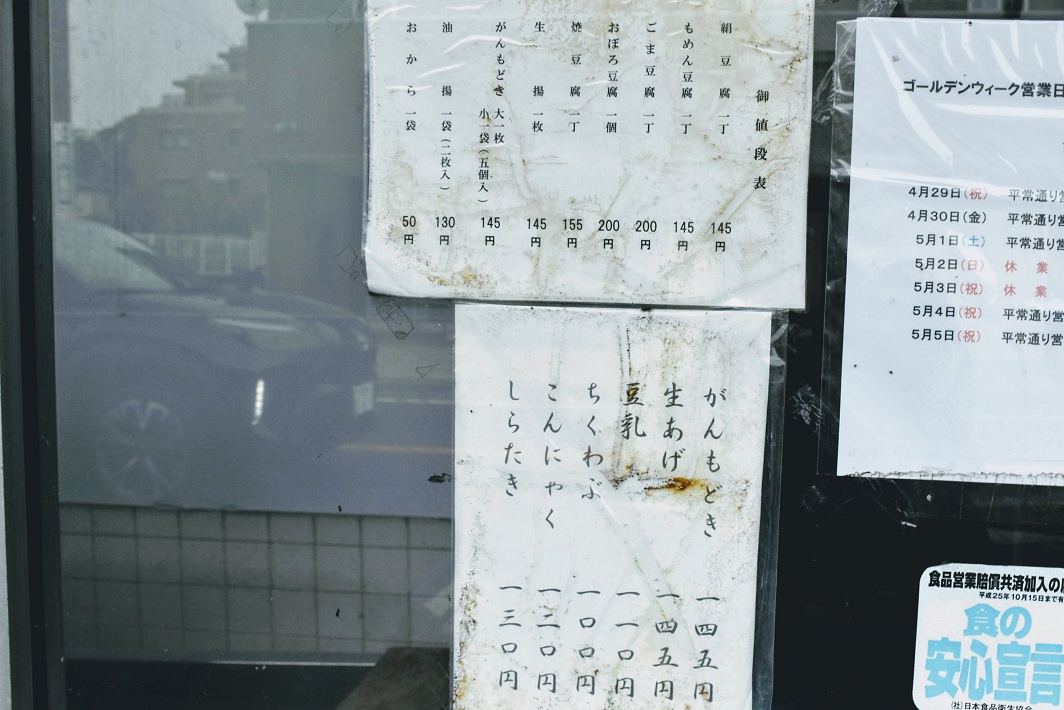 御値段表
絹豆腐 一丁 145円
もめん豆腐 一丁 145円
ごま豆腐 一丁 200円
おぼろ豆腐 一個 200円
焼豆腐 一丁 155円
生揚 一枚 145円
がんもどき 大一枚 小一袋(五個入) 145円
油揚 一袋(二枚入) 130円
おから 一袋 50円
がんもどき 一四五円
生あげ 一四五円
豆乳 一一〇円
ちくわぶ 一〇〇円
こんにゃく 一三〇円
しらたき 一三〇円
ゴールデンウィーク営業日
4月29日(祝) 平常通り営
4月30日(金) 平常通り営
5月1日(土) 平常通り営
5月2日(日) 休業
5月3日(祝) 休業
5月4日(祝) 平常通り営
5月5日(祝) 平常通り営
食品営業賠償共済加入の
平成25年10月15日まで有
食の
安心宣言
(社)日本食品衛生協会